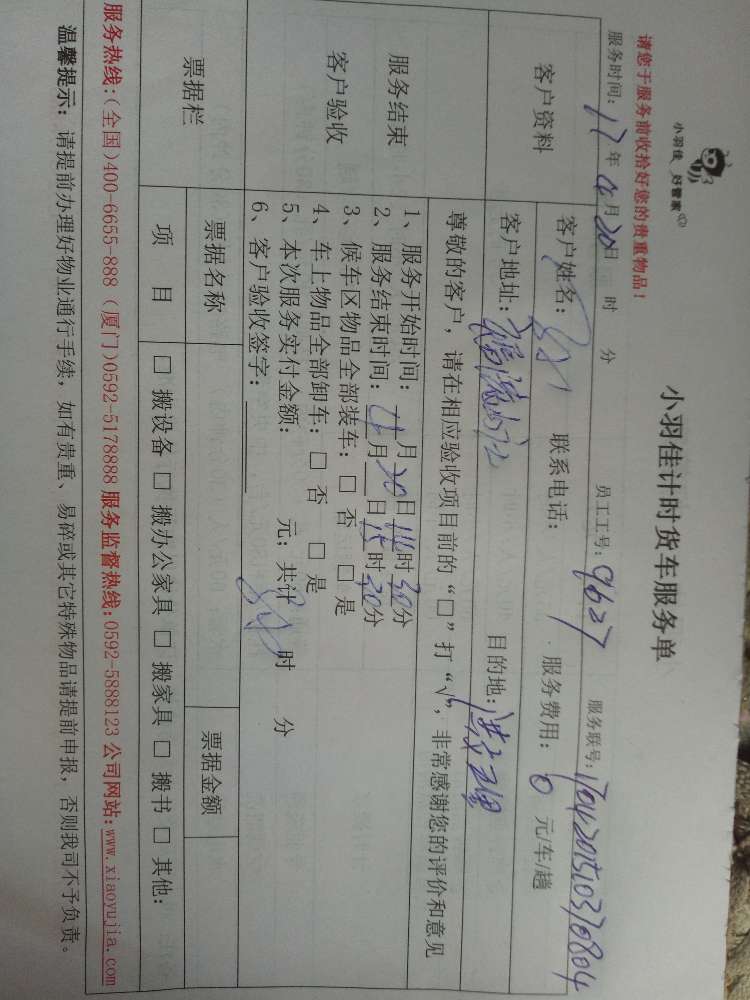 小羽佳 好管家
请您于服务前收拾好您的贵重物品！
小羽佳计时货车服务单
服务时间：17年4月20日 时 分 员工工号：9627 服务联号：
客户资料
客户姓名： 联系电话： 服务费用：0 元/车/趟
客户地址： 目的地：
服务结束
客户验收
尊敬的客户，请在相应验收项目前的“□”打“√”，非常感谢您的评价和意见
1、服务开始时间：4月20日14时30分
2、服务结束时间： 月 日15时20分
3、候车区物品全部装车：□ 否 □ 是
4、车上物品全部卸车：□ 否 □ 是
5、本次服务实付金额： 元；共计 时 分
6、客户验收签字：
票据栏
票据名称 票据金额
项 目 □ 搬设备 □ 搬办公家具 □ 搬家具 □ 搬书 □ 其他：
服务热线：(全国)400-6655-888 (厦门)0592-5178888 服务监督热线：0592-5888123 公司网站：www.xiaoyujia.com
温馨提示：请提前办理好物业通行手续，如有贵重、易碎或其它特殊物品请提前申报，否则我司不予负责。